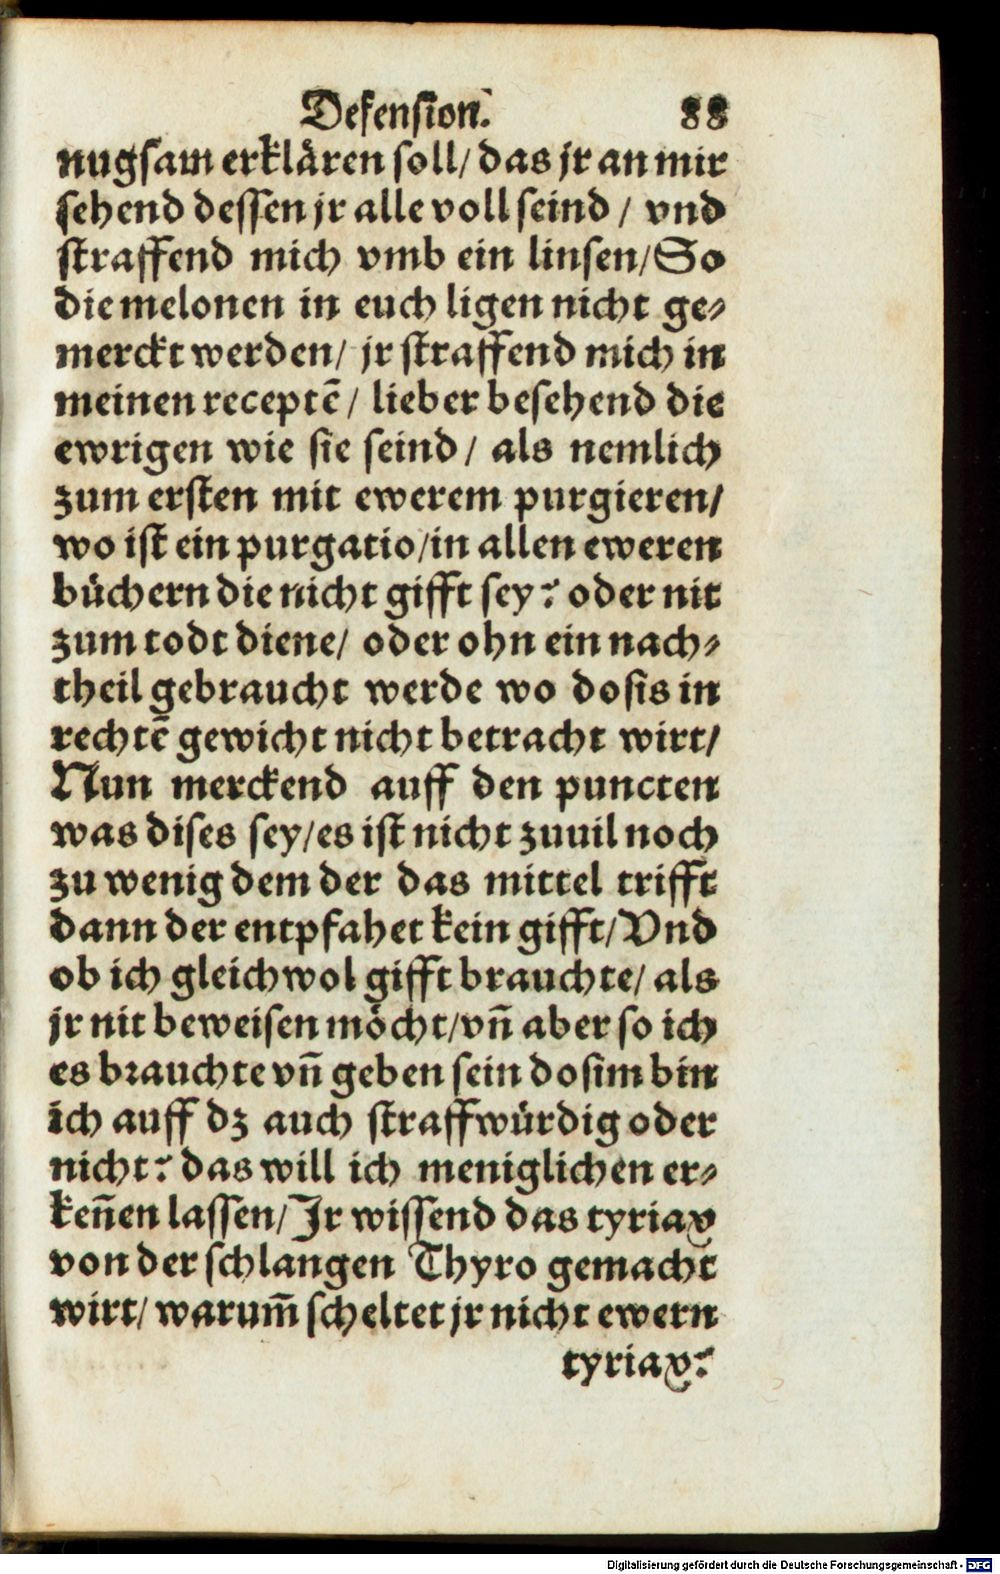 Defension. 88
nugsam erklären soll/ das jr an mir
sehend dessen jr alle voll seind / vnd
straffend mich vmb ein linsen/ So
die melonen in euch ligen nicht ge⸗
merckt werden/ jr straffend mich in
meinen receptē / lieber besehend die
ewrigen wie sie seind / als nemlich
zum ersten mit ewerem purgieren/
wo ist ein purgatio/ in allen eweren
büchern die nicht gifft sey? oder nit
zum todt diene/ oder ohn ein nach⸗
theil gebraucht werde wo dosis in
rechtē gewicht nicht betracht wirt/
Nun merckend auff den puncten
was dises sey/ es ist nicht zuuil noch
zu wenig dem der das mittel trifft
dann der entpfahet kein gifft/ Vnd
ob ich gleichwol gifft brauchte/ als
jr nit beweisen möcht/ vn̄ aber so ich
es brauchte vn̄ geben sein dosim bin
ich auff dz auch straffwürdig oder
nicht? das will ich meniglichen er⸗
ken̄en lassen/ Jr wissend das tyriax
von der schlangen Thyro gemacht
wirt/ warum̄ scheltet jr nicht ewern
tyriax?
Digitalisierung gefördert durch die Deutsche Forschungsgemeinschaft - DFG